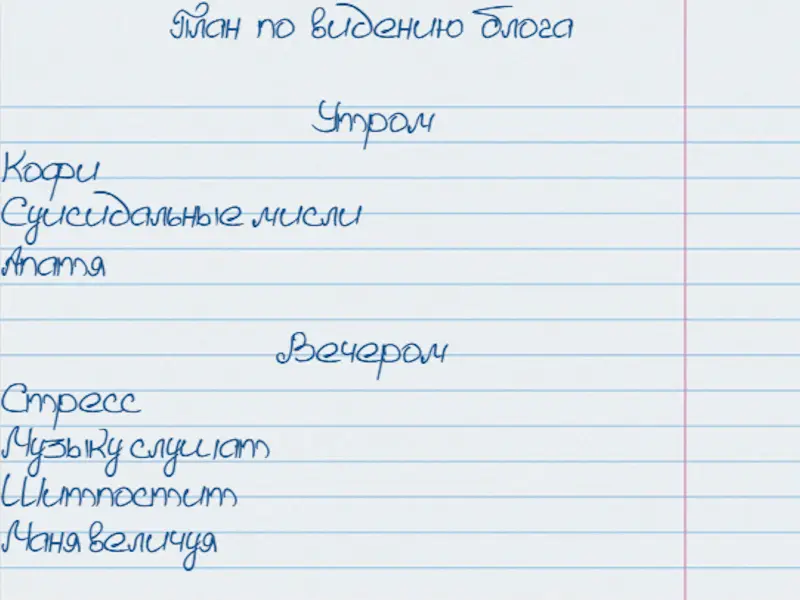 План по видению блога
Утром
Кофи
Суисидальные мисли
Апатя
Вечером
Стресс
Музыку слушат
Шитпостит
Маня величуя